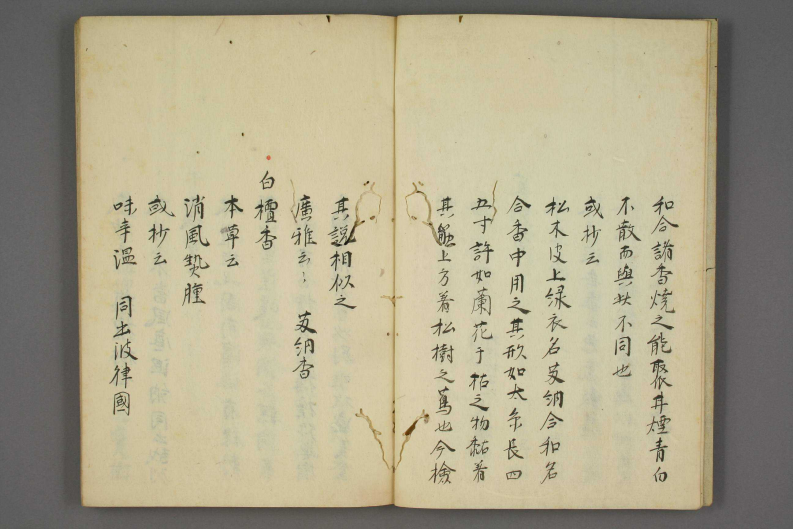 和合諸香燒之能聚其煙青白
不散而與此不同也
或抄云
松木皮上緑衣名艾納合和名
合香中用之其形如大糸長四
五寸許如蘭花于枯之物黏着
其體上方着松樹之蔦也今檢
其說相似之
廣雅云〻　艾納香
白檀香
本草云
消風𤍠腫
或抄云
味辛温　同出波律國